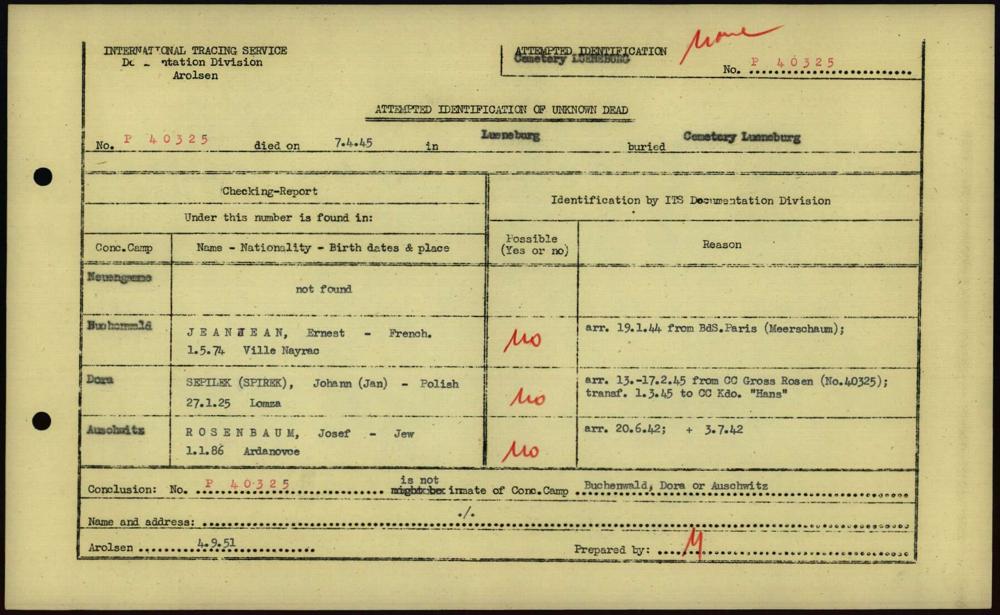 INTERNATIONAL TRACING SERVICE
Documentation Division
Arolsen
ATTEMPTED IDENTIFICATION
Cemetery LUENEBURG
None
No. P 40325
ATTEMPTED IDENTIFICATION OF UNKNOWN DEAD
No. P 40325 died on 7.4.45 in Lueneburg buried Cemetery Lueneburg
Checking-Report
Under this number is found in:
Identification by ITS Documentation Division
Conc.Camp
Name - Nationality - Birth dates & place
Possible
(Yes or no)
Reason
Neuengamme
not found
Buchenwald
JEANJEAN, Ernest - French.
1.5.74 Ville Nayrac
No
arr. 19.1.44 from BdS.Paris (Meerschaum);
Dora
SEPILEK (SPIREK), Johann (Jan) - Polish
27.1.25 Lomza
No
arr. 13.-17.2.45 from CC Gross Rosen (No.40325);
transf. 1.3.45 to CC Kdo. "Hans"
Auschwitz
ROSENBAUM, Josef - Jew
1.1.86 Ardanovce
No
arr. 20.6.42; + 3.7.42
is not
Conclusion: No. P 40325 inmate of Conc.Camp Buchenwald, Dora or Auschwitz
Name and address: ./.
Arolsen 4.9.51 Prepared by: